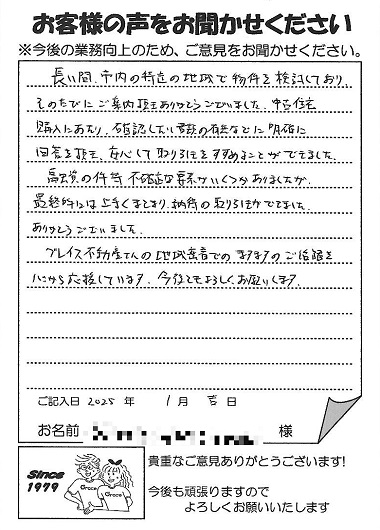 お客様の声をお聞かせください
※今後の業務向上のため、ご意見をお聞かせください。
長い間、市内の特定の地域で物件を検討しており、
そのたびにご案内頂きありがとうございました。中古住宅
購入にあたり、確認したい事項の有無などに明確に
回答を頂き、安心して取り引きをすすめることができました。
融資の件等 不確定な要素がいくつかありましたが、
最終的には上手くまとまり、納得の取り引きができました。
ありがとうございました。
プレイス不動産さんの地域密着でのますますのご活躍を
心から応援しています。今後ともよろしくお願いします。
ご記入日 2025 年 1 月 吉 日
お名前 様
Since
1979
Grace
Grace
貴重なご意見ありがとうございます!
今後も頑張りますので
よろしくお願いいたします